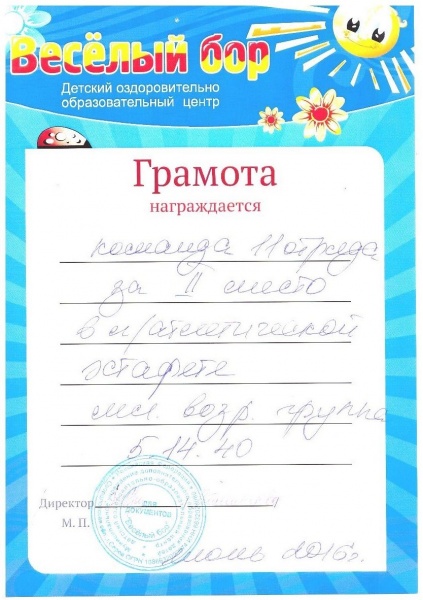 Весёлый бор
Детский оздоровительно
образовательный центр
Грамота
награждается
команда 11 отряда
за II место
в л/атлетической
эстафете
мл. возр. группа
5.14.40
Директор
М. П.
для
документов
"Весёлый бор"
июнь 2016г.